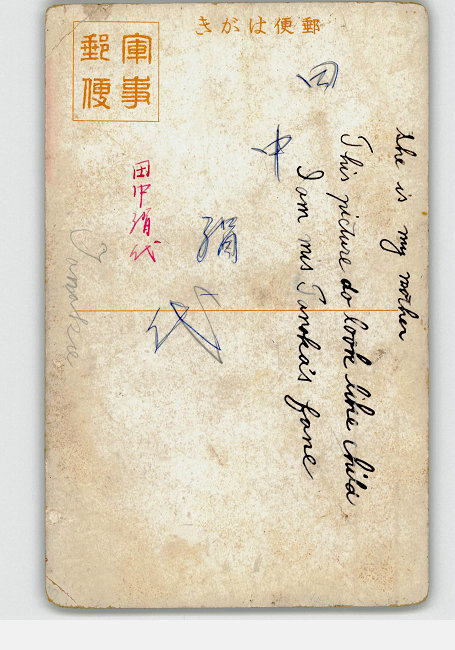 きがは便郵
軍事
郵便
田中
絹代
田中絹代
Tanaka
She is my mother
This picture do look like child
I am mrs Tanaka's fane